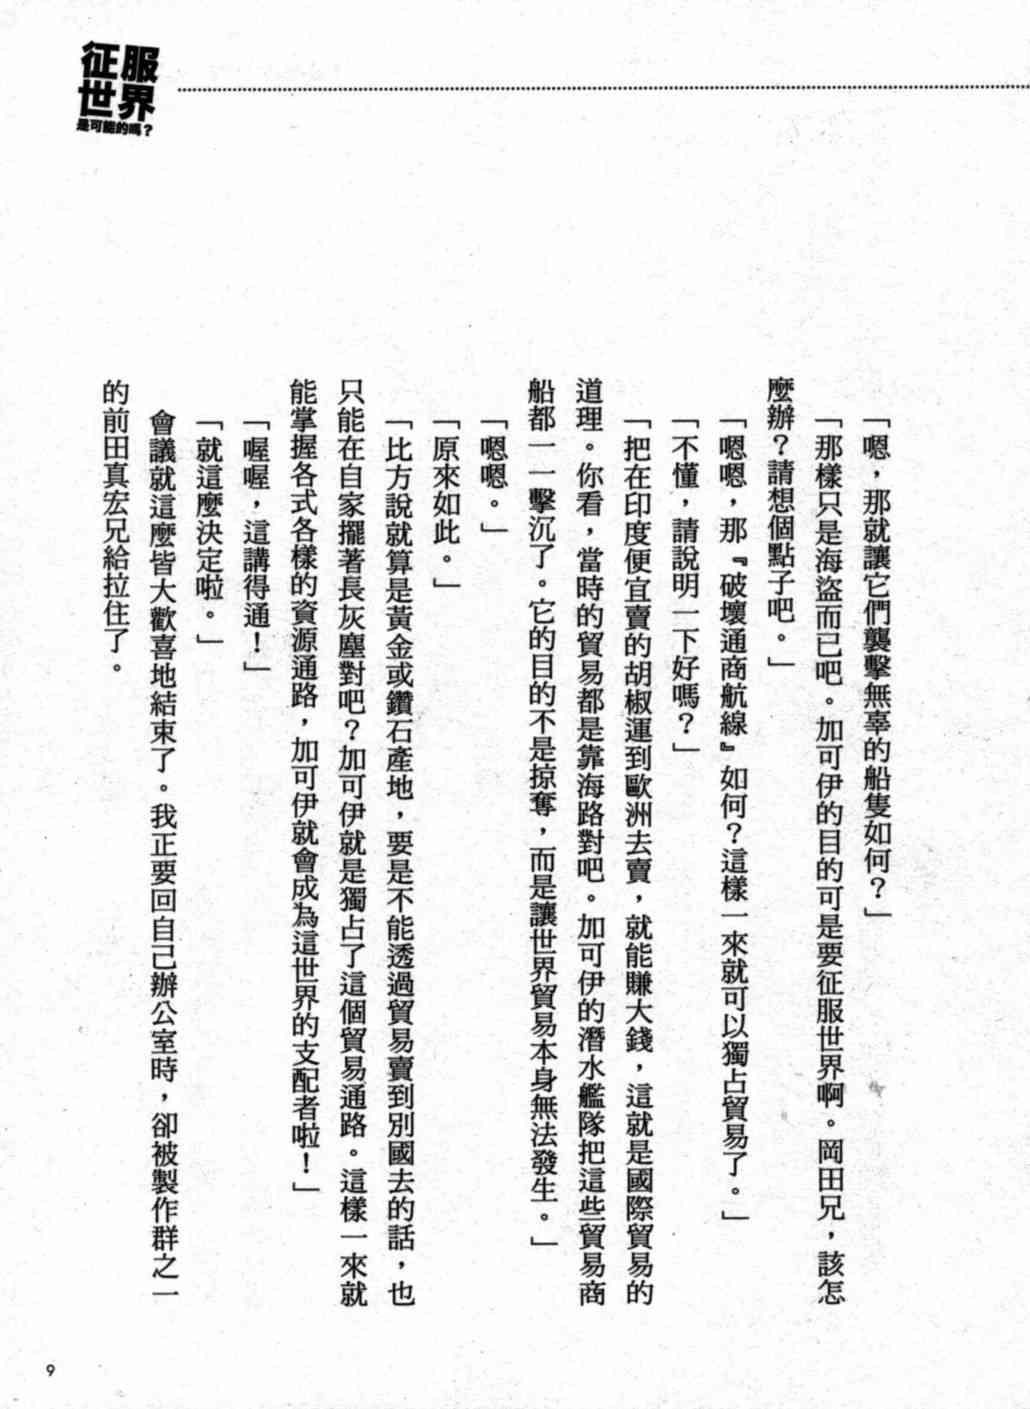 征服
世界
是可能的嗎？
「嗯，那就讓它們襲擊無辜的船隻如何？」
「那樣只是海盜而已吧。加可伊的目的可是要征服世界啊。岡田兄，該怎
麼辦？請想個點子吧。」
「嗯嗯，那『破壞通商航線』如何？這樣一來就可以獨占貿易了。」
「不懂，請說明一下好嗎？」
「把在印度便宜賣的胡椒運到歐洲去賣，就能賺大錢，這就是國際貿易的
道理。你看，當時的貿易都是靠海路對吧。加可伊的潛水艦隊把這些貿易商
船都一一擊沉了。它的目的不是掠奪，而是讓世界貿易本身無法發生。」
「嗯嗯。」
「原來如此。」
「比方說就算是黃金或鑽石產地，要是不能透過貿易賣到別國去的話，也
只能在自家擺著長灰塵對吧？加可伊就是獨占了這個貿易通路。這樣一來就
能掌握各式各樣的資源通路，加可伊就會成為這世界的支配者啦！」
「喔喔，這講得通！」
「就這麼決定啦。」
會議就這麼皆大歡喜地結束了。我正要回自己辦公室時，卻被製作群之一
的前田真宏兄給拉住了。
9